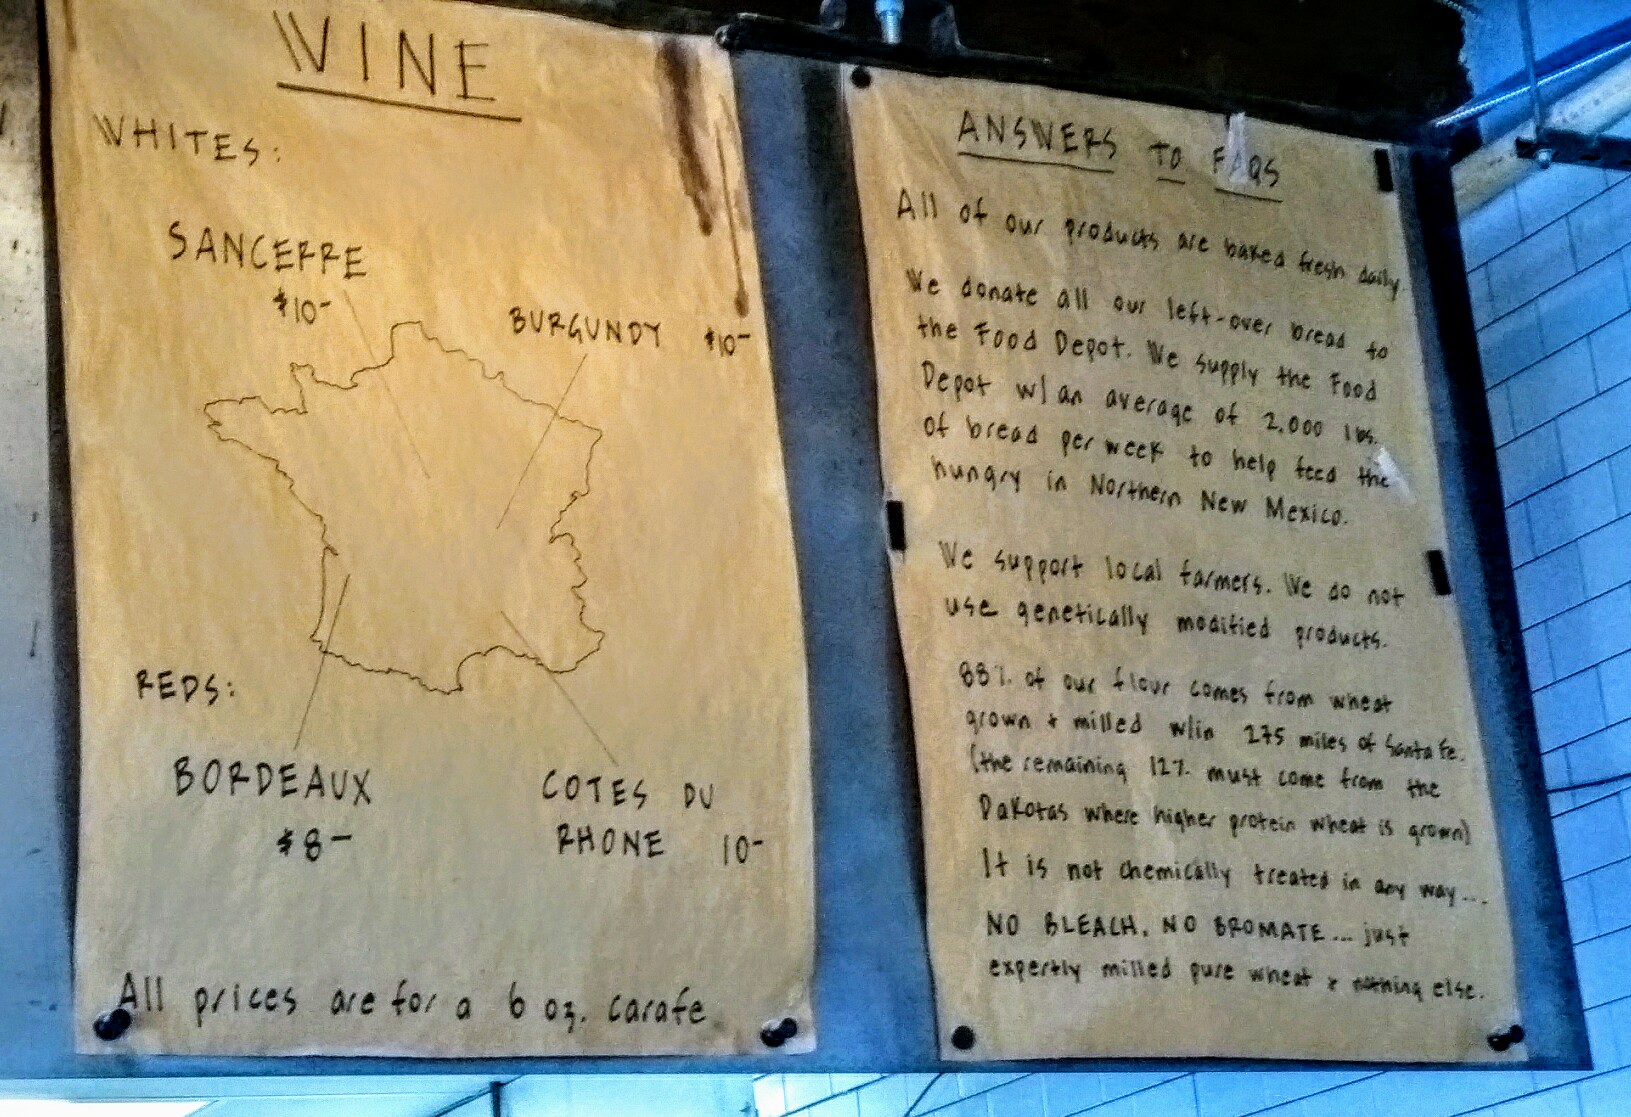 WINE
WHITES:
SANCERRE
$10-
BURGUNDY $10-
REDS:
BORDEAUX
$8-
COTES DU
RHONE 10-
All prices are for a 6 oz. carafe
ANSWERS TO FAQS
All of our products are baked fresh daily
We donate all our left-over bread to
the Food Depot. We supply the Food
Depot w/ an average of 2,000 lbs.
of bread per week to help feed the
hungry in Northern New Mexico.
We support local farmers. We do not
use genetically modified products.
88% of our flour comes from wheat
grown + milled w/in 275 miles of Santa Fe.
(the remaining 12% must come from the
Dakotas where higher protein wheat is grown)
It is not chemically treated in any way...
NO BLEACH, NO BROMATE... just
expertly milled pure wheat + nothing else.